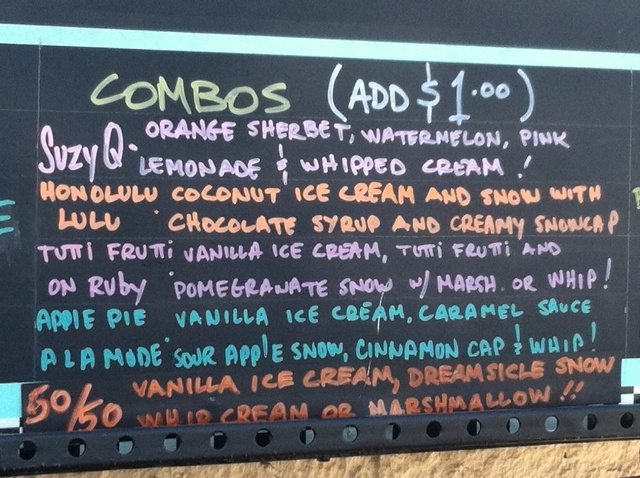 COMBOS (ADD $1.00)
SUZY Q - ORANGE SHERBET, WATERMELON, PINK
LEMONADE & WHIPPED CREAM!
HONOLULU COCONUT ICE CREAM AND SNOW WITH
LULU CHOCOLATE SYRUP AND CREAMY SNOWCAP
TUTTI FRUTTI VANILLA ICE CREAM, TUTTI FRUTTI AND
ON RUBY POMEGRANATE SNOW W/ MARSH. OR WHIP!
APPLE PIE VANILLA ICE CREAM, CARAMEL SAUCE
A LA MODE SOUR APPLE SNOW, CINNAMON CAP & WHIP!
50/50 VANILLA ICE CREAM, DREAMSICLE SNOW
WHIP CREAM OR MARSHMALLOW!!